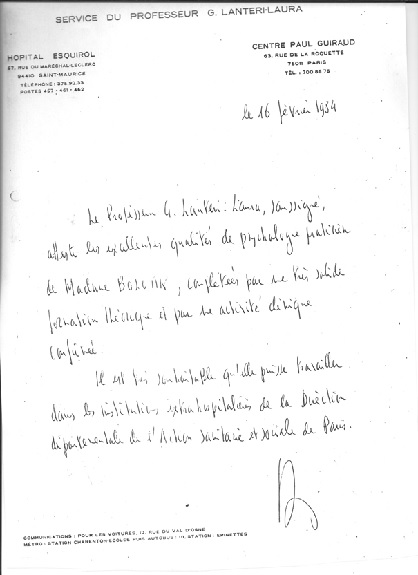 SERVICE DU PROFESSEUR G. LANTERI-LAURA
HOPITAL ESQUIROL
57, RUE DU MARÉCHAL-LECLERC
94410 SAINT-MAURICE
CENTRE PAUL GUIRAUD
63, RUE DE LA ROQUETTE
75011 PARIS
le 16 février
Le Professeur G. Lanteri-Laura, soussigné,
atteste les excellentes qualités de psychologue praticien
de Madame complétées par une très solide
formation théorique et par une activité clinique
confirmée.
Il est très souhaitable qu'elle puisse travailler
dans les institutions extrahospitalières de la Direction
départementale de l'Action sanitaire et sociale de Paris.
COMMUNICATIONS : POUR LES VOITURES, RUE DU VAL D'OSNE